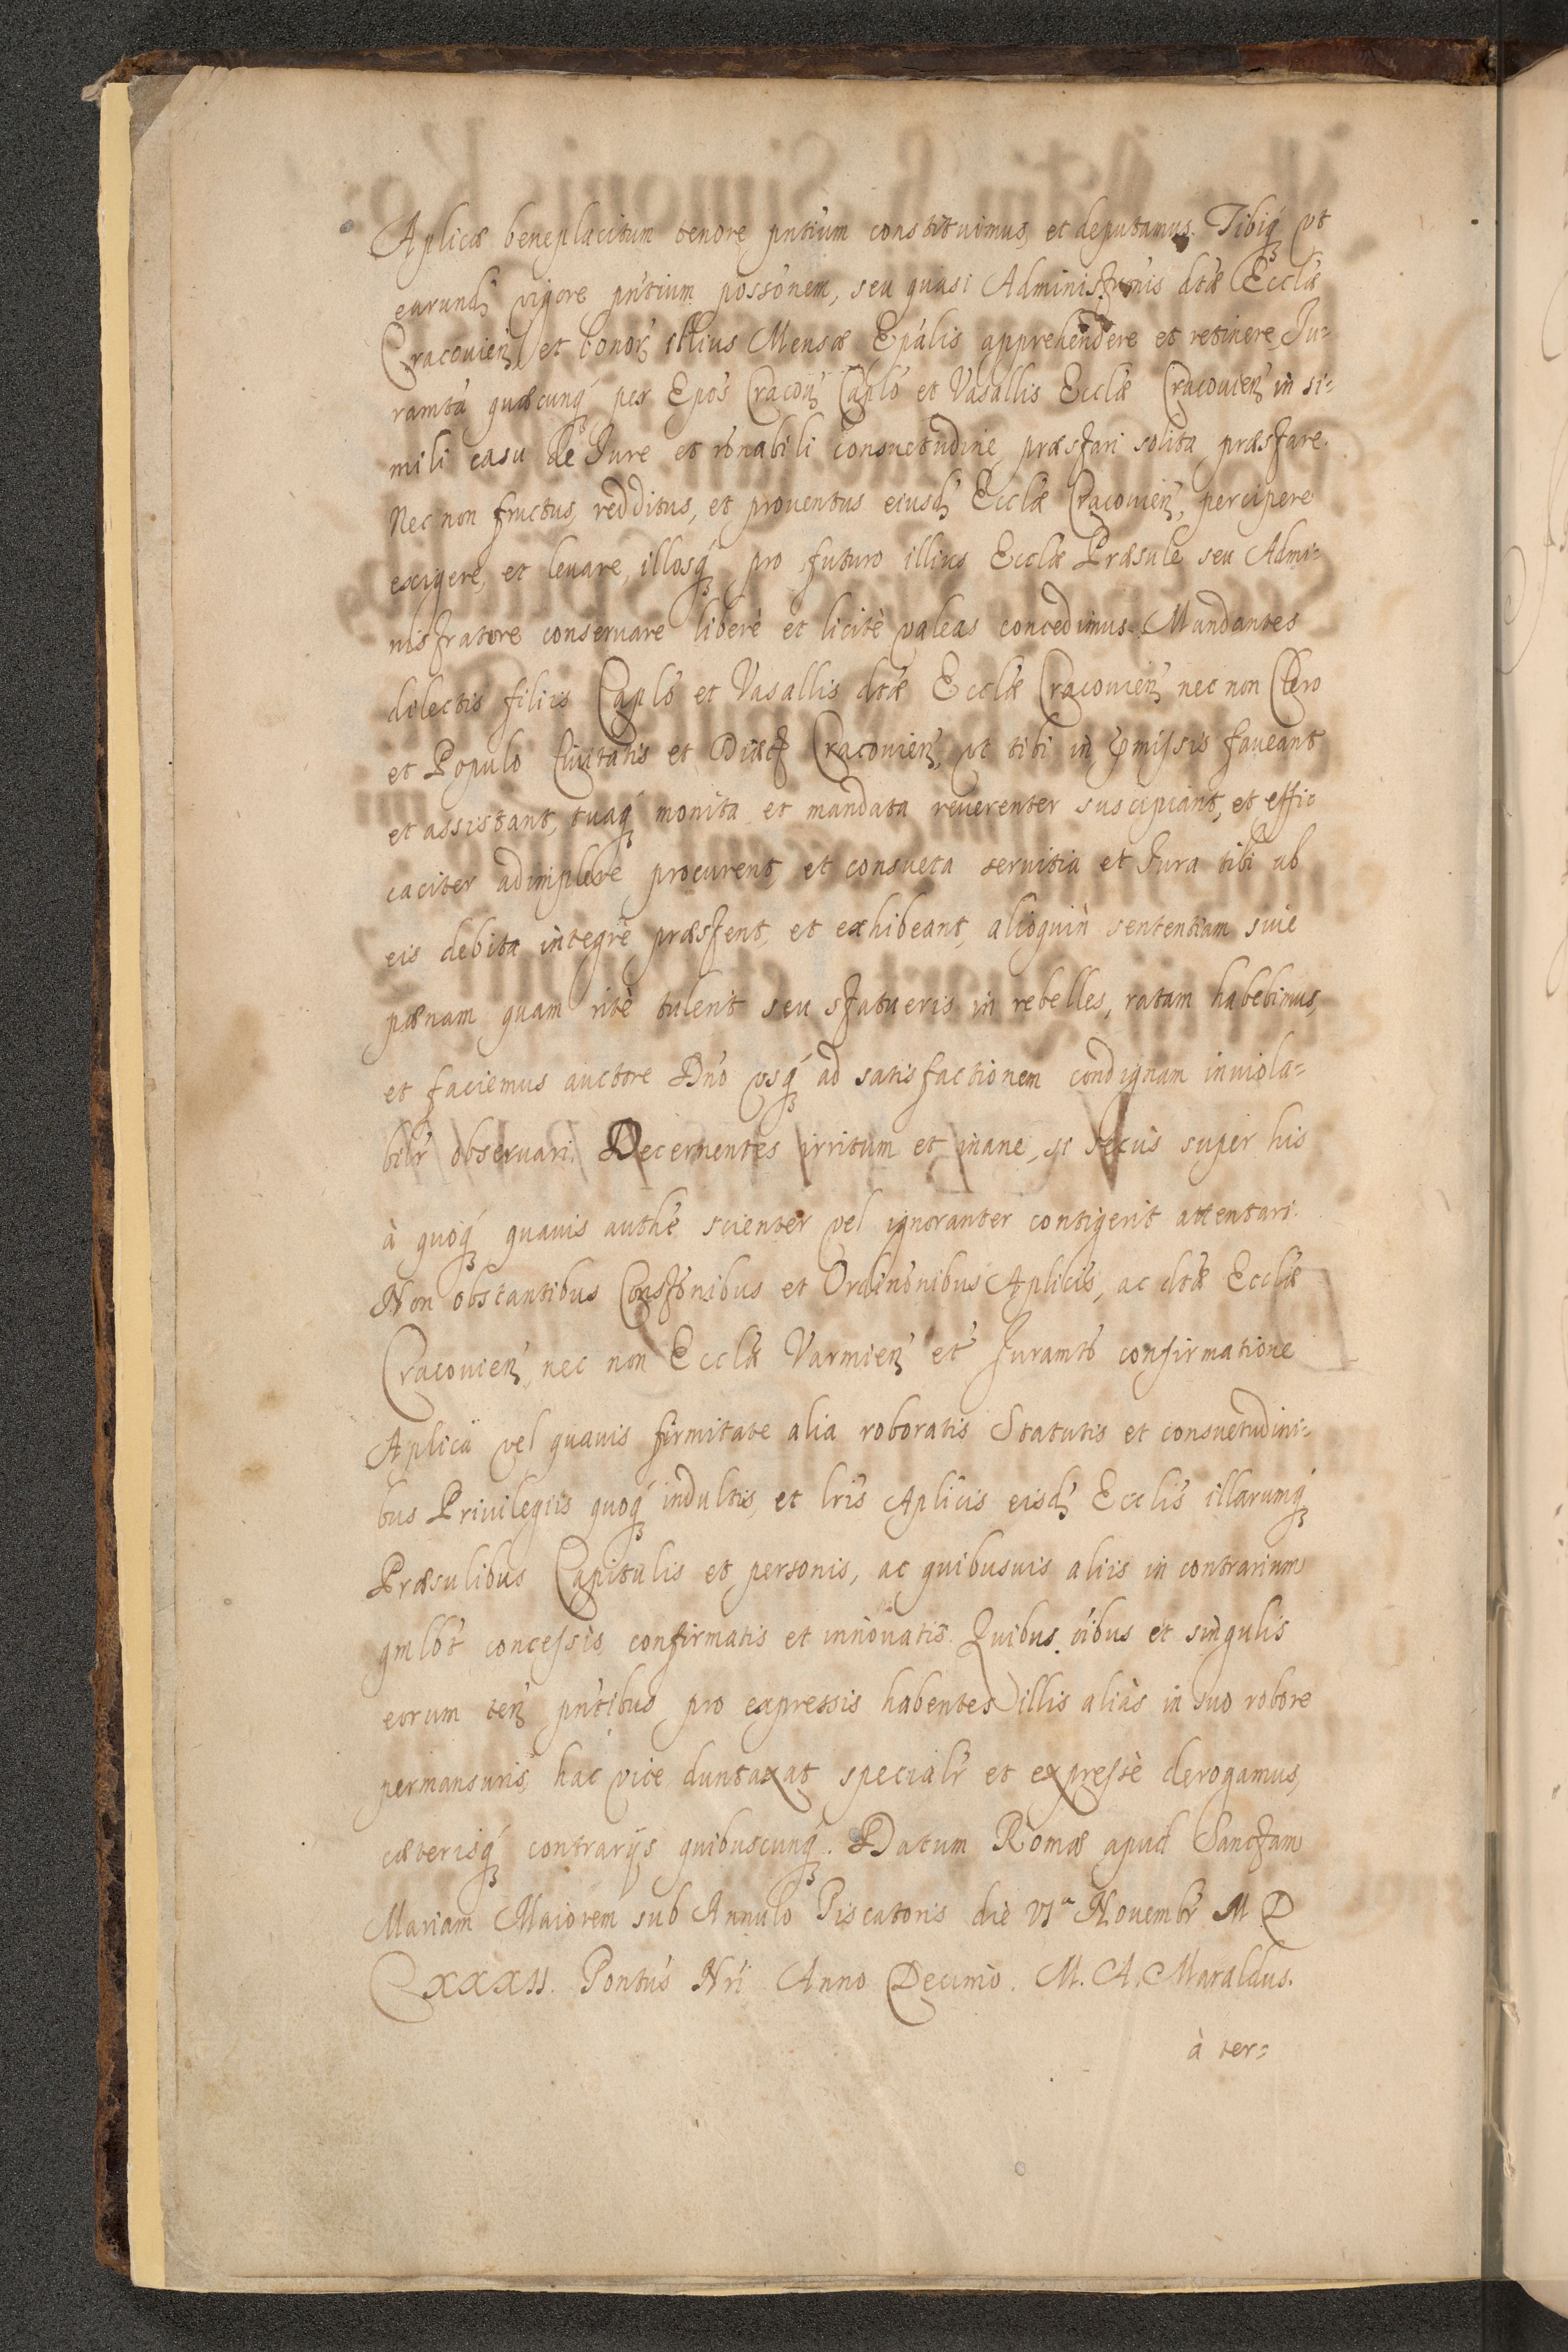 Aplicæ beneplacitum tenore pntium constituimus, et deputamus. Tibiq́ȝ vt
earund́ vigore pńtium possónem, seu quasi Administrónis dtæ Ecclæ
Cracouień et bonoŕ illius Mensæ Epális apprehendere et retinere, Ju=
ramtá quæcunq́ȝ per Epós Cracoń Capló et Vasallis Ecclæ Cracouień in si=
mili casu de Jure et rónabili consuetudine præstari solita præstare.
Nec non fructus, redditus, et prouentus eiusd́ Ecclæ Cracouień, percipere
exigere, et leuare, illosq́ȝ pro futuro illius Ecclæ Præsule seu Admi=
nistratore conseruare liberè et licitè valeas concedimus. Mandantes
dilectis filiis Capló et Vasallis dtæ Ecclæ Cracouień nec non Clero
et Populo Ciuitatis et Diæć Cracouień, vt tibi in p̃missis faueant
et assistant, tuaq́ȝ monita et mandata reuerenter suscipiant, et effic
caciter adimplere procurent, et consueta seruitia et Jura tibi ab
eis debita integrè præstent, et exhibeant, alioquin sententiam siue
pænam quam ritè tulerit seu statueris in rebelles, ratam habebimus,
et faciemus auctore Dnó vsq́ȝ ad satisfactionem condignam inuiola=
bilŕ obseruari. Decernentes irritum et inane, si secus super his
à quoq́ȝ quauis authé scienter vel ignoranter contigerit attentari.
Non obstantibus Constónibus et Ordinónibus Aplicis, ac dtæ Ecclæ
Cracouień, nec non Ecclæ Varmień et Juramtó confirmatione
Aplicá vel quauis firmitate alia roboratis Statutis et consuetudini=
bus Priuilegiis quoq́ȝ indultis, et lris Aplicis eisd́ Ecclis illarumq́ȝ
Præsulibus Capitulis et personis, ac quibusuis aliis in contrarium
qmlbt́ concessis, confirmatis et innouatis. Quibus óibus et singulis
eorum teń pńtibus pro expressis habentes illis aliàs in suo robore
permansuris, hac vice duntaxat specialŕ et expressè derogamus,
cæterisq́ȝ contrarijs quibuscunq́ȝ. Datum Romæ apud Sanctam
Mariam Maiorem sub Annulo Piscatoris diè VIª Nouembŕ M D
CXXXII. Pontús Nrí Anno Decimo. M. A. Maraldus.
à ter=